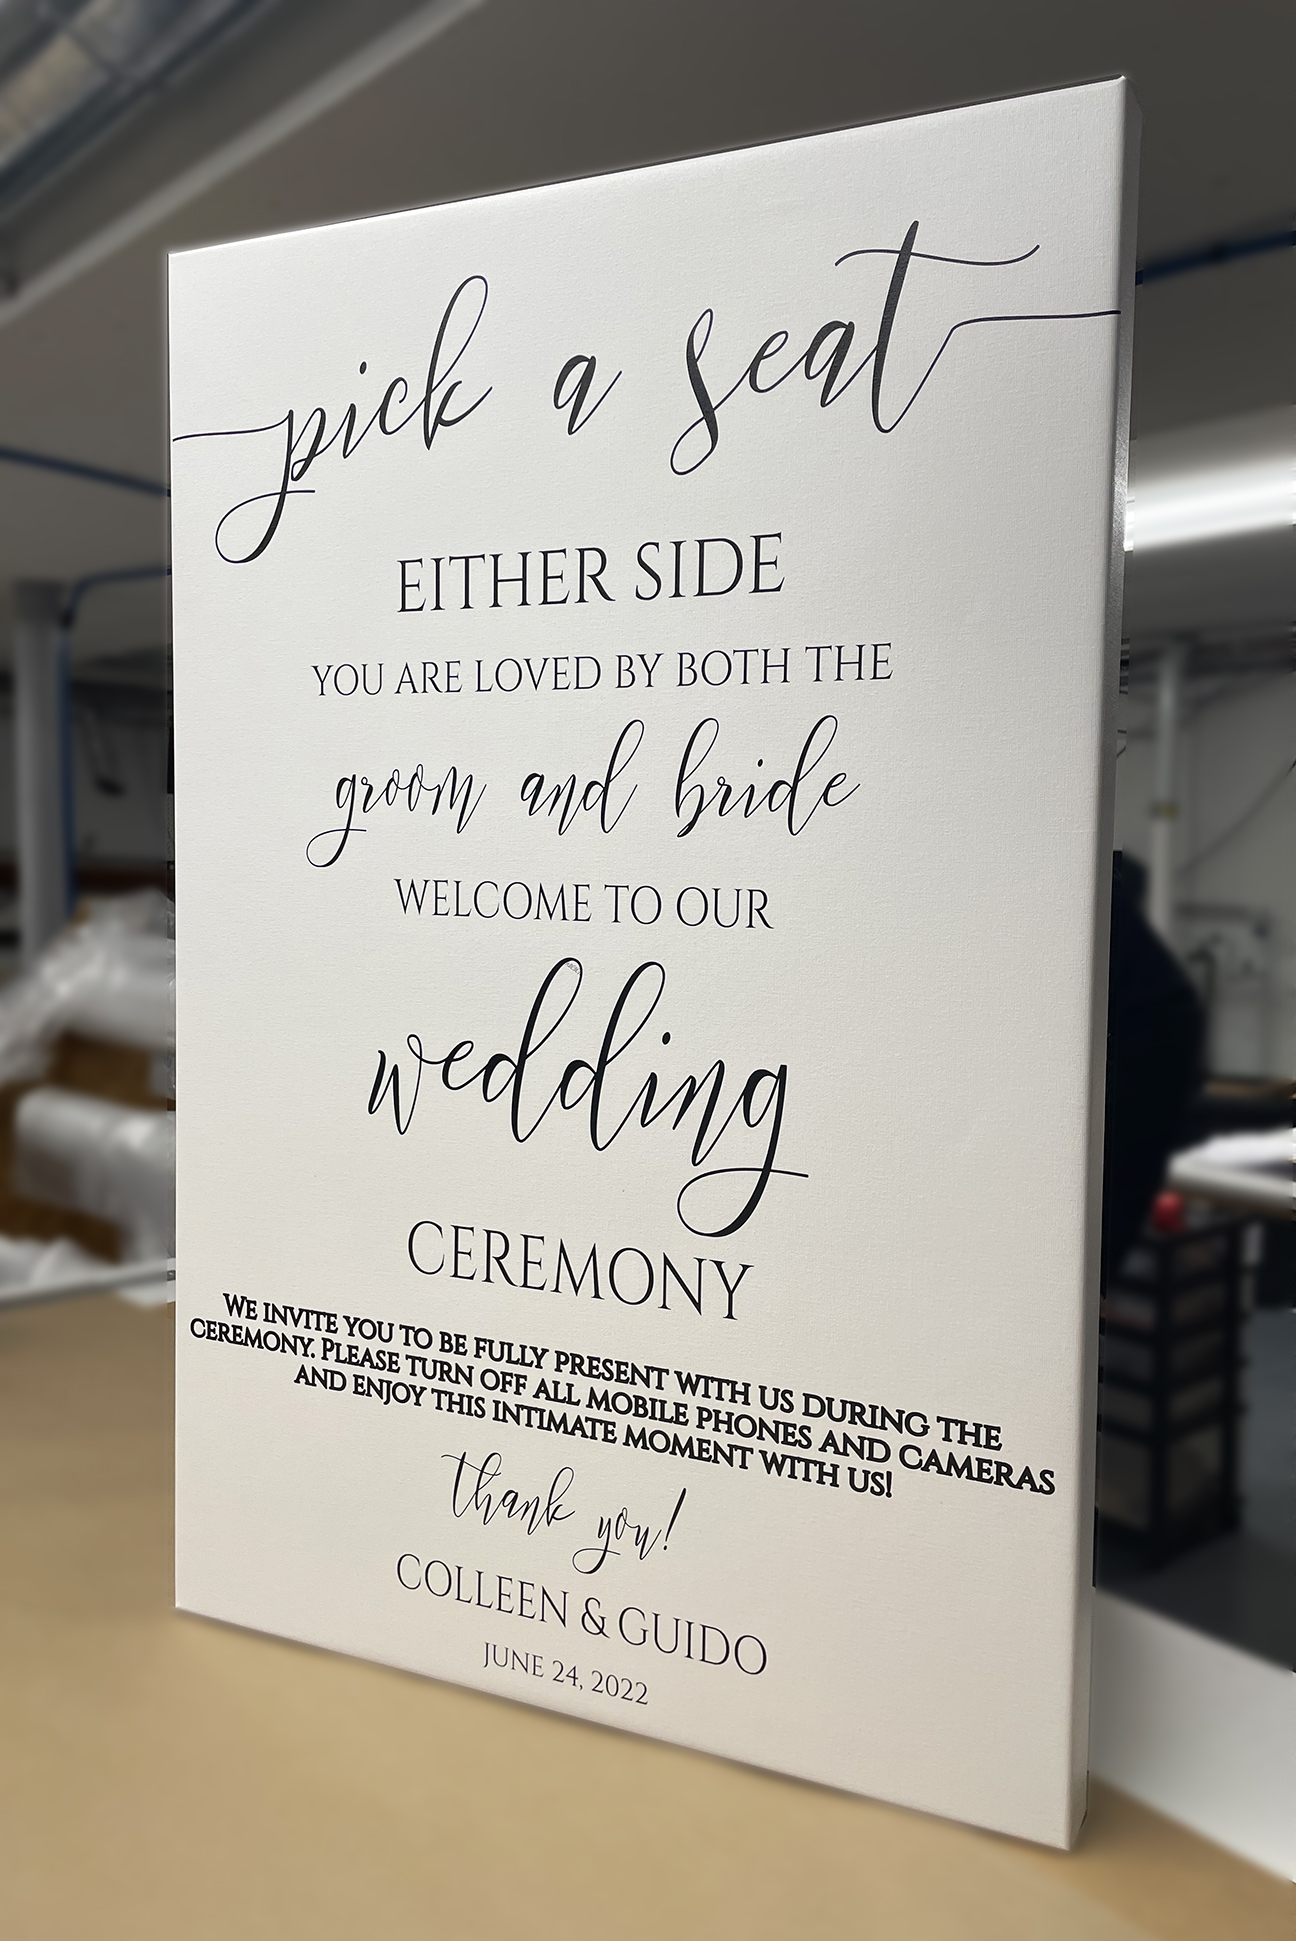 pick a seat
EITHER SIDE
YOU ARE LOVED BY BOTH THE
groom and bride
WELCOME TO OUR
wedding
CEREMONY
WE INVITE YOU TO BE FULLY PRESENT WITH US DURING THE
CEREMONY. PLEASE TURN OFF ALL MOBILE PHONES AND CAMERAS
AND ENJOY THIS INTIMATE MOMENT WITH US!
thank you!
COLLEEN & GUIDO
JUNE 24, 2022